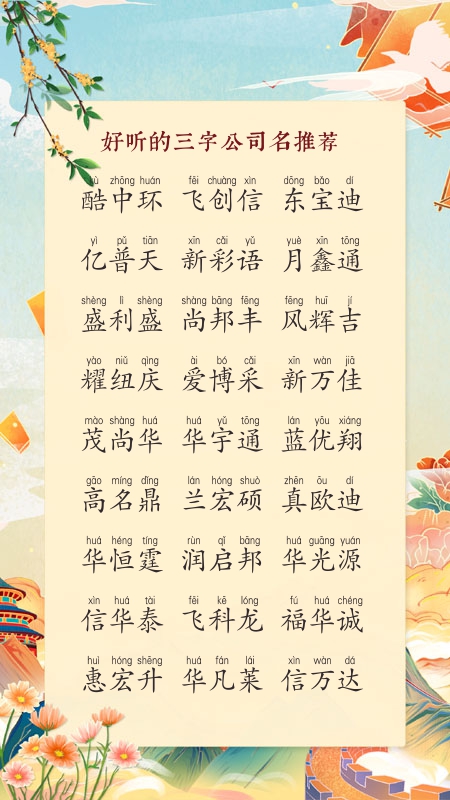 好听的三字公司名推荐
kù zhōng huán fēi chuàng xìn dōng bǎo dí
酷中环 飞创信 东宝迪
yì pǔ tiān xīn cǎi yǔ yuè xīn tōng
亿普天 新彩语 月鑫通
shèng lì shèng shàng bāng fēng fēng huī jí
盛利盛 尚邦丰 风辉吉
yào niǔ qìng ài bó cǎi xīn wàn jiā
耀纽庆 爱博采 新万佳
mào shàng huá huá yǔ tōng lán yōu xiáng
茂尚华 华宇通 蓝优翔
gāo míng dǐng lán hóng shuò zhēn ōu dí
高名鼎 兰宏硕 真欧迪
huá héng tíng rùn qǐ bāng huá guāng yuán
华恒霆 润启邦 华光源
xìn huá tài fēi kē lóng fú huá chéng
信华泰 飞科龙 福华诚
huì hóng shēng huá fán lái xìn wàn dá
惠宏升 华凡莱 信万达